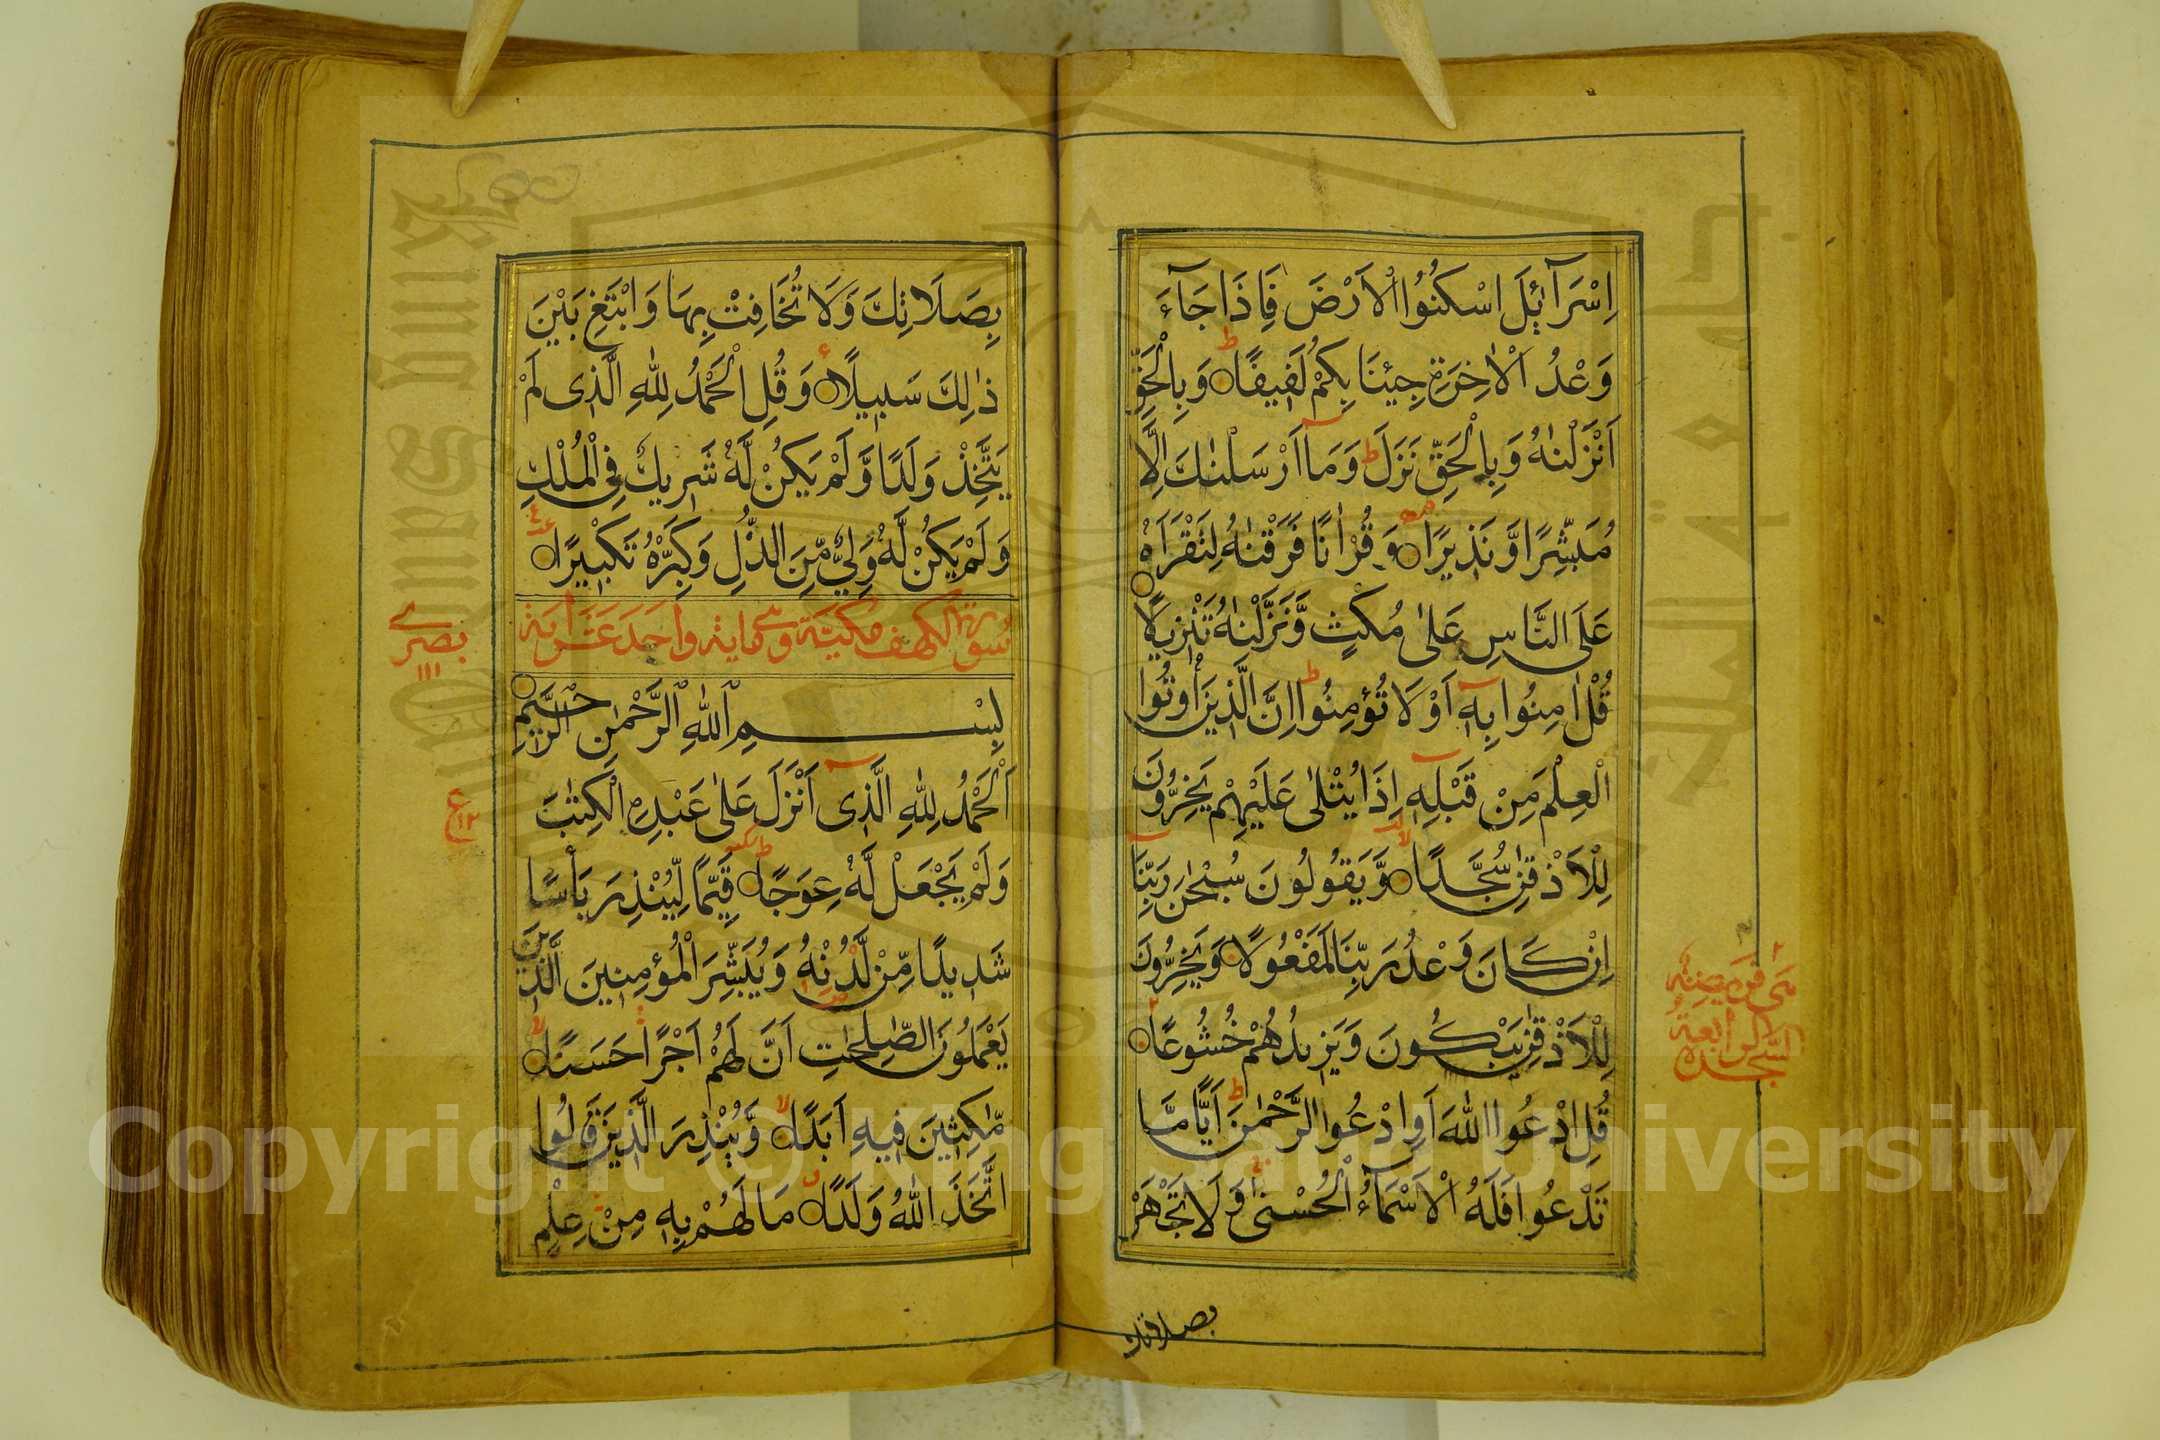 اِسْرَآئِلَ اسْكُنُوا الْاَرْضَ فَاِذَا جَآءَ
وَعْدُ الْاٰخِرَةِ جِئْنَا بِكُمْ لَفِيفًا وَبِالْحَقِّ
اَنْزَلْنٰهُ وَبِالْحَقِّ نَزَلَ ط وَمَآ اَرْسَلْنٰكَ اِلَّا
مُبَشِّرًا وَّنَذِيرًا وَقُرْاٰنًا فَرَقْنٰهُ لِتَقْرَاَهُ
عَلَى النَّاسِ عَلٰى مُكْثٍ وَّنَزَّلْنٰهُ تَنْزِيلًا
قُلْ اٰمِنُوا بِهٖٓ اَوْ لَا تُؤْمِنُوا ط اِنَّ الَّذِينَ اُوتُوا
الْعِلْمَ مِنْ قَبْلِهٖٓ اِذَا يُتْلٰى عَلَيْهِمْ يَخِرُّونَ
لِلْاَذْقَانِ سُجَّدًا وَّيَقُولُونَ سُبْحٰنَ رَبِّنَآ
اِنْ كَانَ وَعْدُ رَبِّنَا لَمَفْعُولًا وَيَخِرُّونَ
لِلْاَذْقَانِ يَبْكُونَ وَيَزِيدُهُمْ خُشُوعًا
قُلِ ادْعُوا اللّٰهَ اَوِ ادْعُوا الرَّحْمٰنَ ط اَيًّا مَّا
تَدْعُوا فَلَهُ الْاَسْمَآءُ الْحُسْنٰى وَلَا تَجْهَرْ
السجدة الرابعة
بصلاتك
بِصَلَاتِكَ وَلَا تُخَافِتْ بِهَا وَابْتَغِ بَيْنَ
ذٰلِكَ سَبِيلًا وَقُلِ الْحَمْدُ لِلّٰهِ الَّذِى لَمْ
يَتَّخِذْ وَلَدًا وَّلَمْ يَكُنْ لَّهُ شَرِيكٌ فِى الْمُلْكِ
وَلَمْ يَكُنْ لَّهُ وَلِيٌّ مِّنَ الذُّلِّ وَكَبِّرْهُ تَكْبِيرًا
سورة الكهف مكية وهى ماية واحد عشر اية
بصرى
١١١
بِسْمِ اللّٰهِ الرَّحْمٰنِ الرَّحِيمِ
اَلْحَمْدُ لِلّٰهِ الَّذِىٓ اَنْزَلَ عَلٰى عَبْدِهِ الْكِتٰبَ
ع ١٢
وَلَمْ يَجْعَلْ لَّهُ عِوَجًا قَيِّمًا لِّيُنْذِرَ بَأْسًا
شَدِيدًا مِّنْ لَّدُنْهُ وَيُبَشِّرَ الْمُؤْمِنِينَ الَّذِينَ
يَعْمَلُونَ الصّٰلِحٰتِ اَنَّ لَهُمْ اَجْرًا حَسَنًا
مّٰكِثِينَ فِيهِ اَبَدًا وَّيُنْذِرَ الَّذِينَ قَالُوا
اتَّخَذَ اللّٰهُ وَلَدًا مَا لَهُمْ بِهٖ مِنْ عِلْمٍ
King Saud University
جامعة الملك سعود
Copyright © King Saud University